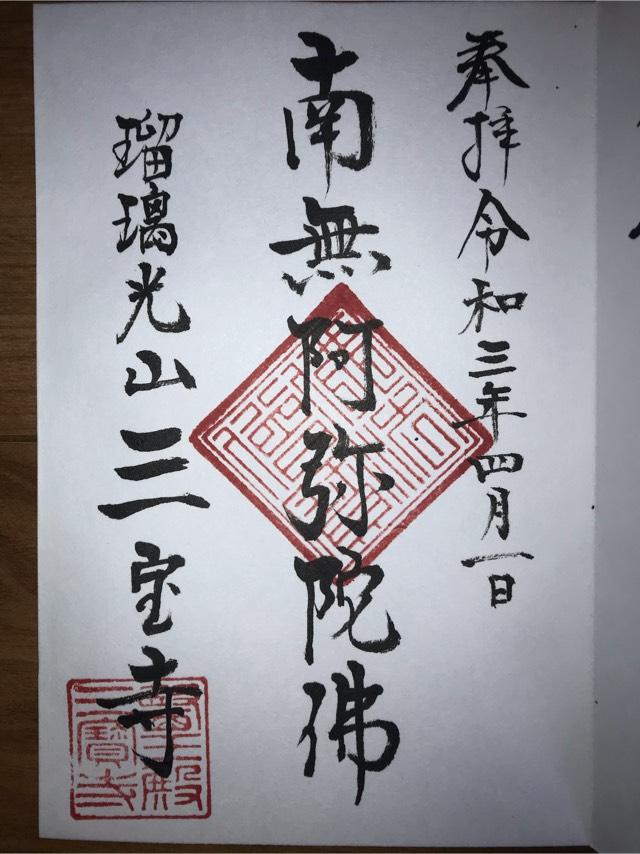 奉拝令和三年四月一日
南無阿弥陀佛
瑠璃光山三宝寺